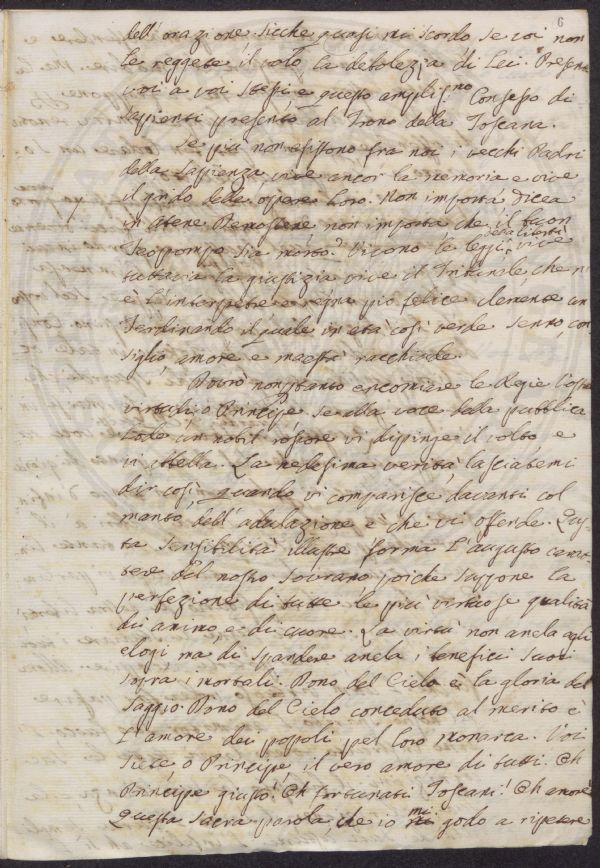 6
dell'orazione. Sicche quasi mi scordo, se voi non
le reggete il volo, la debolezza di lei. Presente
voi a voi stessi, e questo ampliss.mo Consesso di
sapienti presento al Trono della Toscana.
Se più non esistono fra noi i vecchi Padri
della sapienza vive ancor la memoria e vive
il grido delle opere loro. Non importa dicea
in Atene Demostene non importa che il buon
Teopompo sia morto? Vivono le leggi, della libertà vive
tuttavia la giustizia vive il Tribunale, che n'
è l'interprete e regna più felice clemente un
Ferdinando il quale in età così verde senno, con
siglio, amore e maestà racchiude.
Potrò non pertanto encomiare le Regie Vostre
virtudi, o Principe se alla voce della pubblica
lode un nobil rossore vi dipinge il volto e
vi abbella. La medesima verità, lasciatemi
dir così, quando vi comparisce davanti col
manto dell'adulazione è che vi offende. Que
sta sensibilità illustre forma l'augusto carat
tere del nostro sovrano, poichè suppone la
perfezione di tutte le più virtuose qualità
di animo, e di cuore. La virtù non anela agli
elogi, ma di spandere anela i benefici suoi
sopra i mortali. Dono del Cielo è la gloria del
saggio. Dono del Cielo conceduto al merito è
l'amore dei popoli pel loro monarca. Voi
siete o Principe il vero amore di tutti. Oh
Principe giusto! Oh fortunati Toscani! Oh amore!
Questa sacra parola, che io mi godo a ripetere